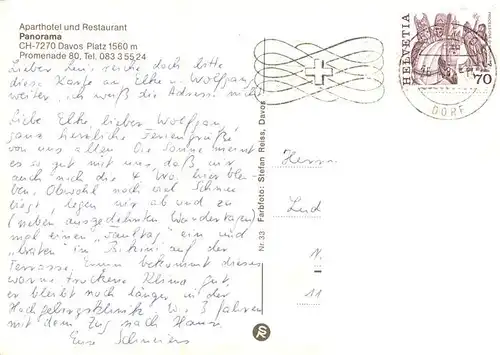 Aparthotel und Restaurant
Panorama
CH-7270 Davos Platz 1560 m
Promenade 80, Tel. 083 3 55 24
Lieber reiche doch bitte
diese Karte an Elke u. Wolfgang
weiter, ich weiß die Adresse nicht
Liebe Elke, lieber Wolfgang,
ganz herzliche Feriengrüße
von uns allen. Die Sonne meint
es so gut mit uns, daß wir
auch noch die 4. Wo. hier blei-
ben. Obwohl noch viel Schnee
liegt, legen wir ab und zu
(neben ausgedehnten Wandertagen)
mal einen "Faultag" ein und
"braten" im Bikini auf der
Terrasse. bekommt dieses
warme trockene Klima gut,
er bleibt noch länger in der
Hochgebirgsklinik. Wir 3 fahren
mit dem Zug nach Hause
Eure Schreiers
Nr. 33 Farbfoto: Stefan Reiss, Davos
HELVETIA
70
DORF
Herrn
Lud
N.
11